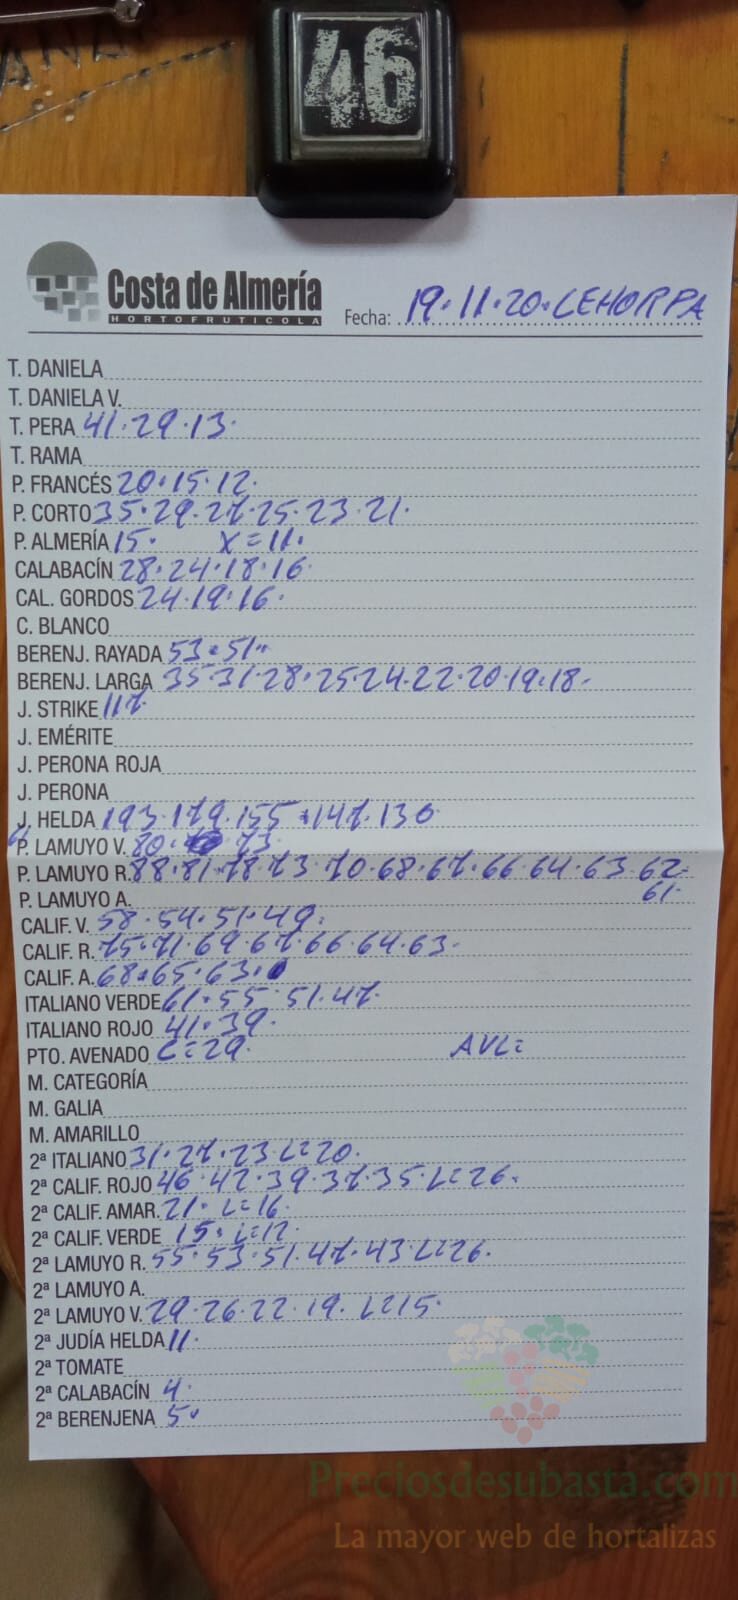 46
Costa de Almería
HORTOFRUTICOLA
Fecha: 19·11·20·LEHORPA
T. DANIELA
T. DANIELA V.
T. PERA 41·29·13·
T. RAMA
P. FRANCÉS 20·15·12·
P. CORTO 35·29·27·25·23·21·
P. ALMERÍA 15· X=11·
CALABACÍN 28·24·18·16·
CAL. GORDOS 24·19·16·
C. BLANCO
BERENJ. RAYADA 53·51·
BERENJ. LARGA 35·31·28·25·24·22·20·19·18·
J. STRIKE 117
J. EMÉRITE
J. PERONA ROJA
J. PERONA
J. HELDA 193·179·155·147·130
P. LAMUYO V. 80·73·
P. LAMUYO R. 88·81·78·73·70·68·67·66·64·63·62·
61·
P. LAMUYO A.
CALIF. V. 58·54·51·49·
CALIF. R. 75·71·69·67·66·64·63·
CALIF. A. 68·65·63·
ITALIANO VERDE 61·55·51·47·
ITALIANO ROJO 41·39·
PTO. AVENADO C=29· AVL=
M. CATEGORÍA
M. GALIA
M. AMARILLO
2ª ITALIANO 31·27·23·L=20·
2ª CALIF. ROJO 46·42·39·37·35·L=26·
2ª CALIF. AMAR. 21· L=16·
2ª CALIF. VERDE 15· L=12·
2ª LAMUYO R. 55·53·51·47·43·L=26·
2ª LAMUYO A.
2ª LAMUYO V. 29·26·22·19· L=15·
2ª JUDÍA HELDA 11·
2ª TOMATE
2ª CALABACÍN 4·
2ª BERENJENA 5·
Preciosdesubasta.com
La mayor web de hortalizas